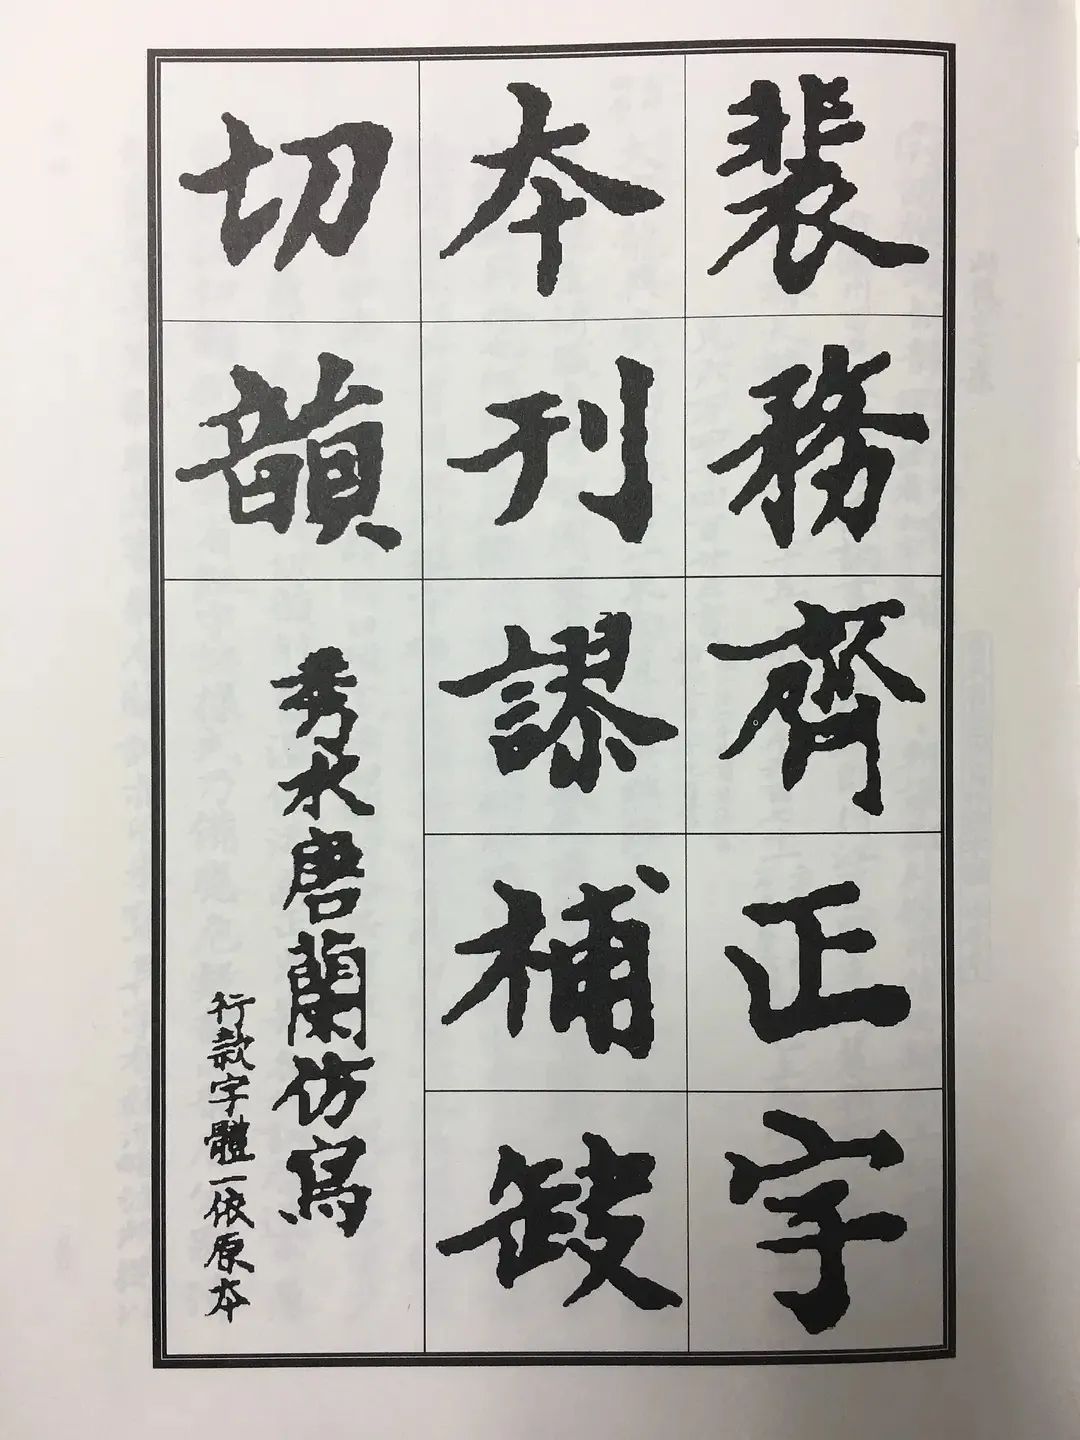 裴務齊正字
本刊謬補缺
切韻
秀水唐蘭仿寫
行款字體一依原本